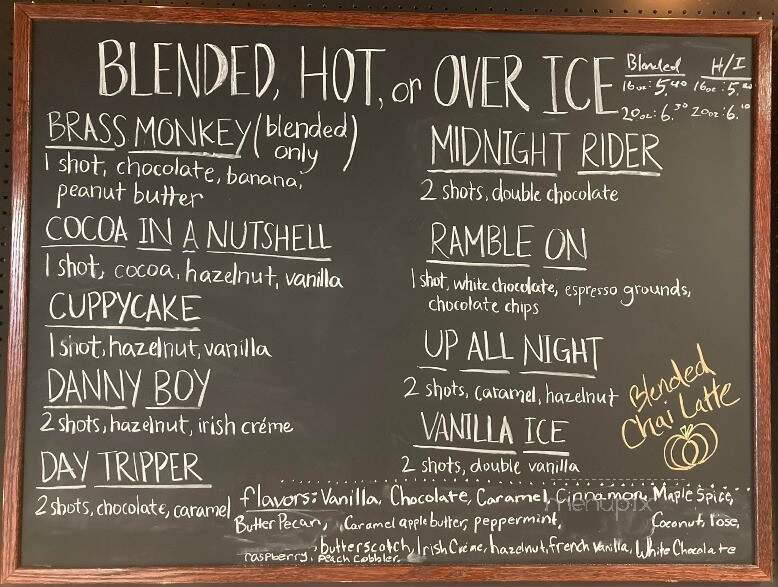 BLENDED, HOT, or OVER ICE
Blended H/I
16oz: 5.40 16oz: 5.
20oz: 6.30 20oz: 6.10
BRASS MONKEY (blended only)
1 shot, chocolate, banana,
peanut butter
COCOA IN A NUTSHELL
1 shot, cocoa, hazelnut, vanilla
CUPPYCAKE
1 shot, hazelnut, vanilla
DANNY BOY
2 shots, hazelnut, irish créme
DAY TRIPPER
2 shots, chocolate, caramel
MIDNIGHT RIDER
2 shots, double chocolate
RAMBLE ON
1 shot, white chocolate, espresso grounds,
chocolate chips
UP ALL NIGHT
2 shots, caramel, hazelnut
VANILLA ICE
2 shots, double vanilla
Blended
Chai Latte
flavors: Vanilla, Chocolate, Caramel, Cinnamon, Maple Spice,
Butter Pecan, Caramel apple butter, peppermint, Coconut, rose,
butterscotch, Irish Créme, hazelnut, french vanilla, White Chocolate
raspberry, Peach Cobbler
menupix